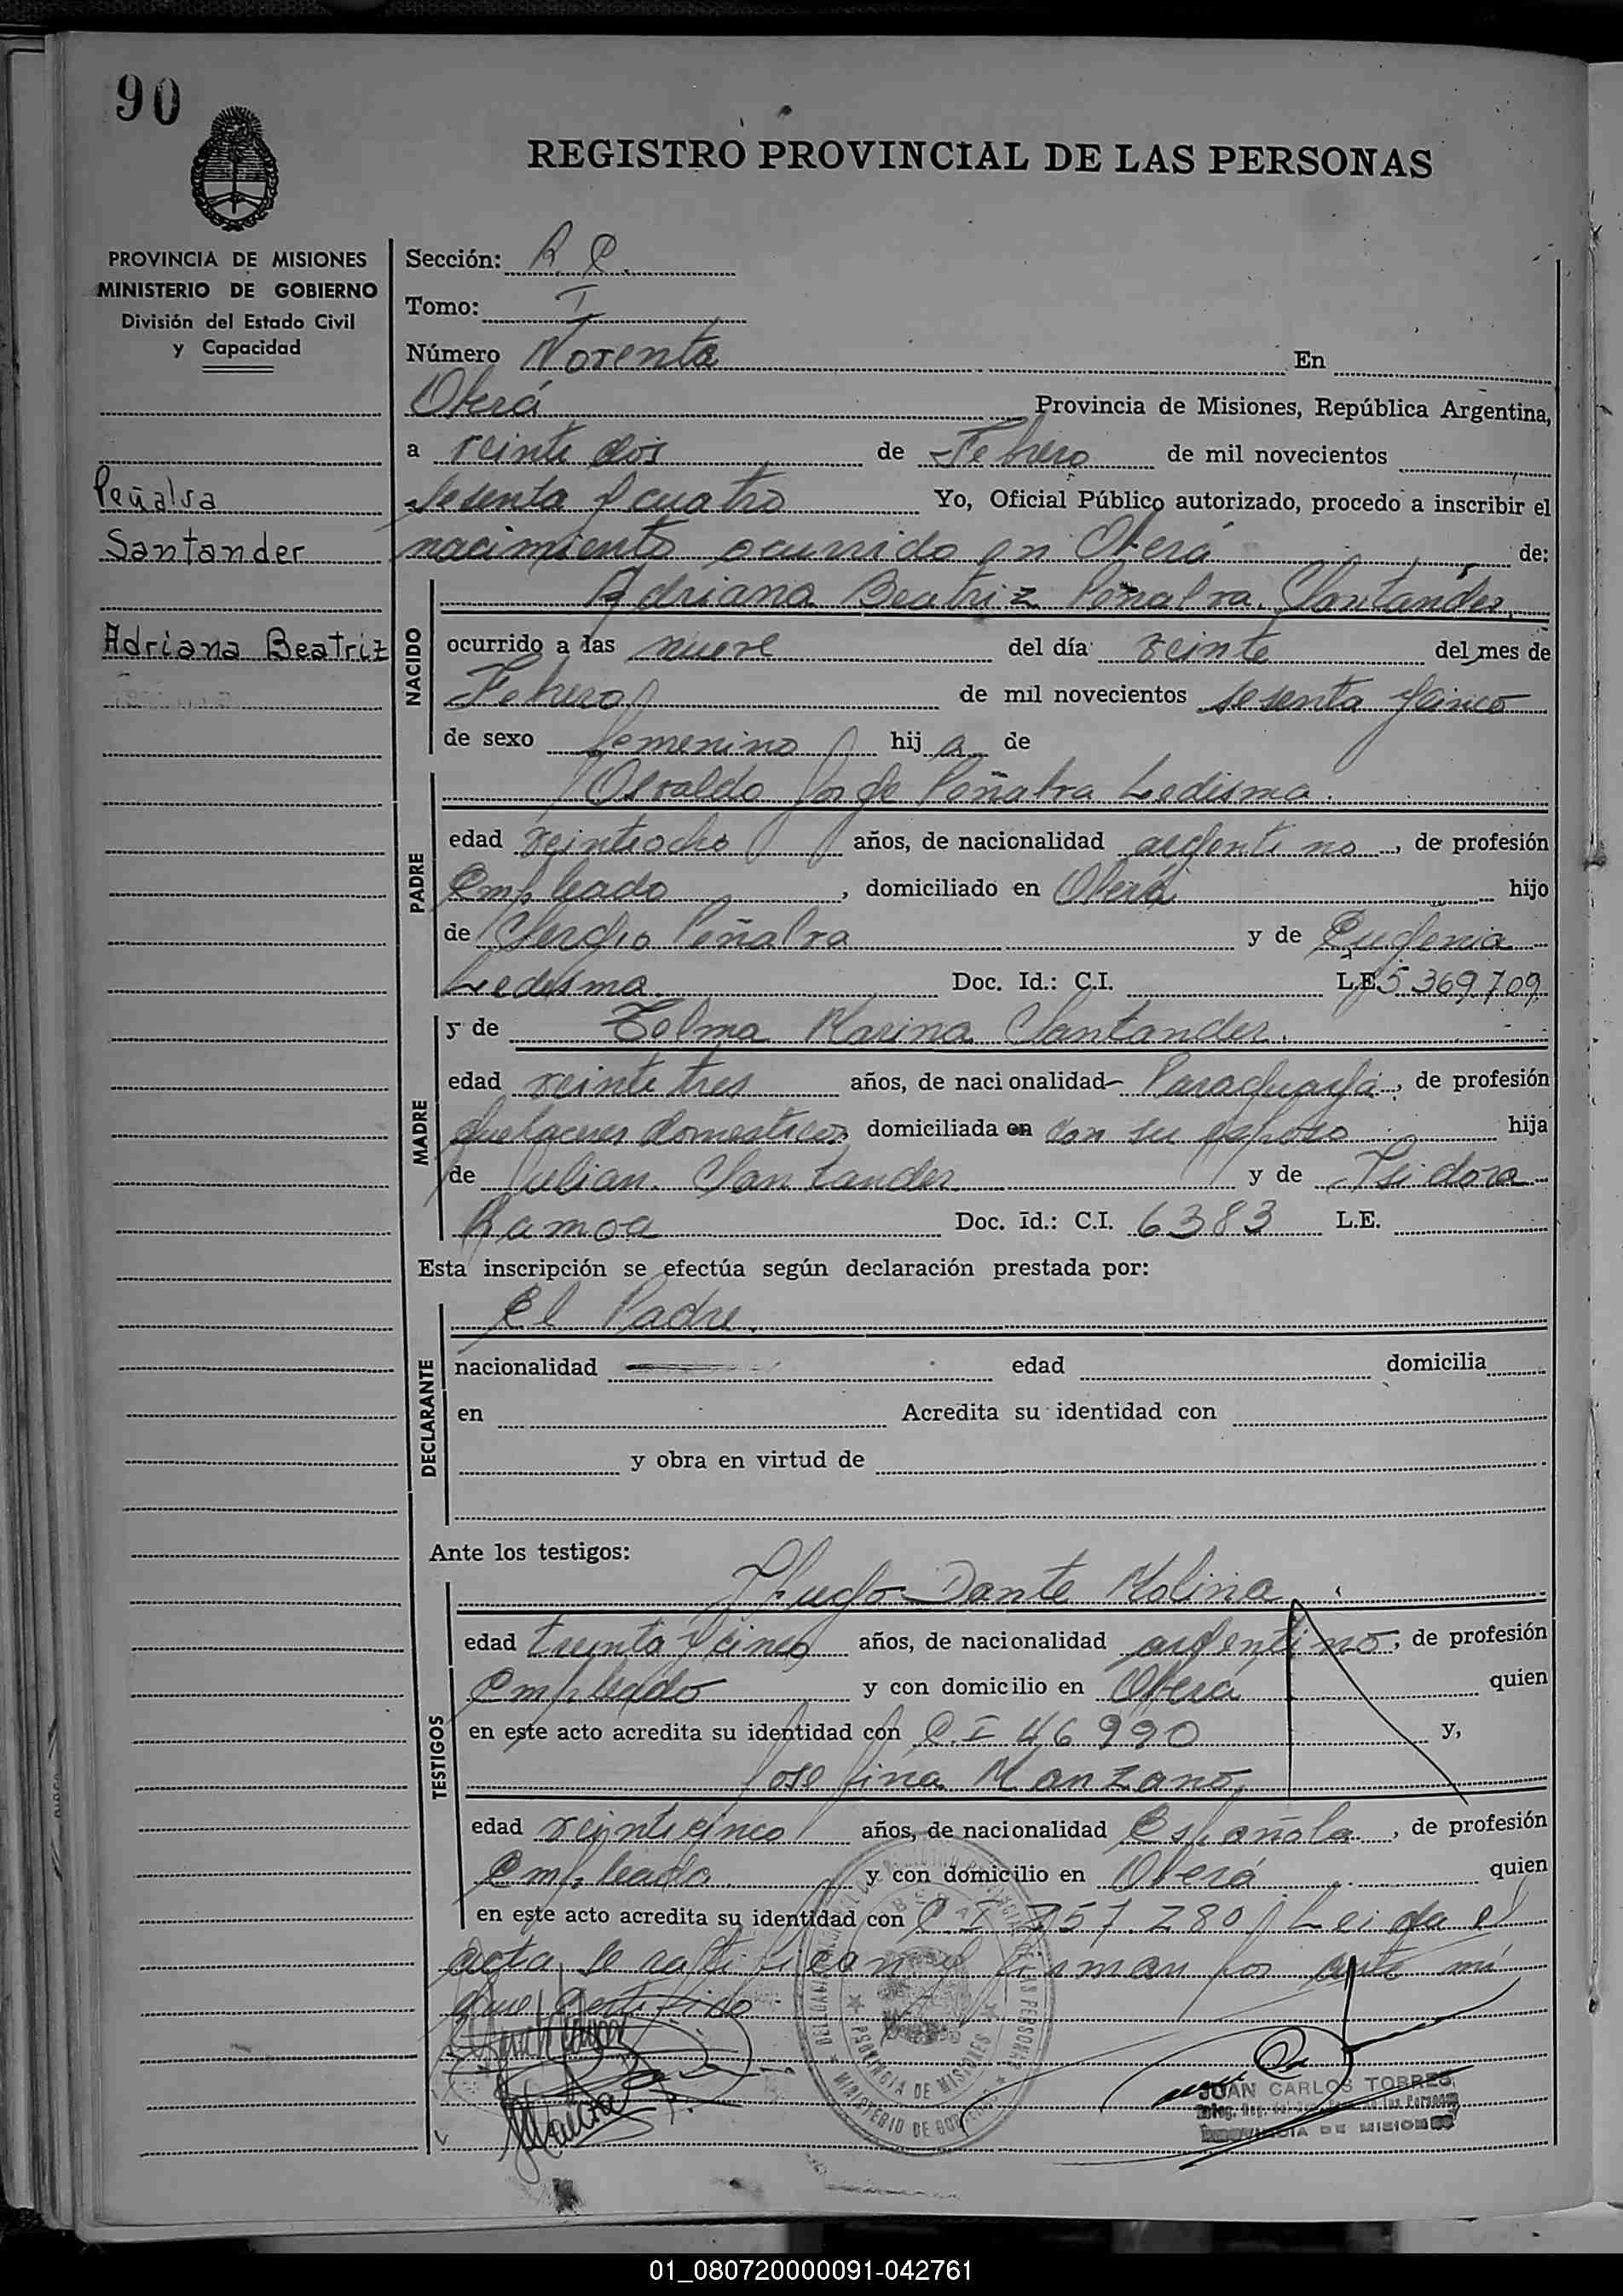 90
REGISTRO PROVINCIAL DE LAS PERSONAS
PROVINCIA DE MISIONES
MINISTERIO DE GOBIERNO
División del Estado Civil
y Capacidad
Peñalva
Santander
Adriana Beatriz
Sección:
Tomo: I
Número Noventa En
Oberá Provincia de Misiones, República Argentina,
a veinte dós de Febrero de mil novecientos
sesenta y cuatro Yo, Oficial Público autorizado, procedo a inscribir el
nacimiento ocurrido en Oberá de:
NACIDO
Adriana Beatriz Peñalva Santander
ocurrido a las nueve del día veinte del mes de
Febrero de mil novecientos sesenta y cinco
de sexo femenino hij a de
PADRE
Osvaldo Jorge Peñalva Ledisma.
edad veintiocho años, de nacionalidad argentino, de profesión
Empleado, domiciliado en Oberá hijo
de Sergio Peñalva y de Eugenia
Ledesma Doc. Id.: C.I. L.E. 5.369.709
MADRE
y de Telma Marina Santander.
edad veinte tres años, de nacionalidad Paraguaya, de profesión
quehaceres domesticos domiciliada en con su esposo hija
de Julian Santander y de Isidora
Ramoa Doc. Id.: C.I. 6383 L.E.
Esta inscripción se efectúa según declaración prestada por:
DECLARANTE
El Padre.
nacionalidad edad domicilia
en Acredita su identidad con
y obra en virtud de
Ante los testigos:
TESTIGOS
Hugo Dante Molina
edad treinta y cinco años, de nacionalidad argentino, de profesión
Empleado y con domicilio en Oberá quien
en este acto acredita su identidad con C.I 46990 y,
Josefina Manzano,
edad veinticinco años, de nacionalidad Española, de profesión
Empleada y con domicilio en Oberá quien
en este acto acredita su identidad con C.I 757.280 Leida el
acta, se ratifican y firman por ante mi
que certifico
PROVINCIA DE MISIONES
MINISTERIO DE GOBIERNO
JUAN CARLOS TORRES
PROVINCIA DE MISIONES
01_080720000091-042761